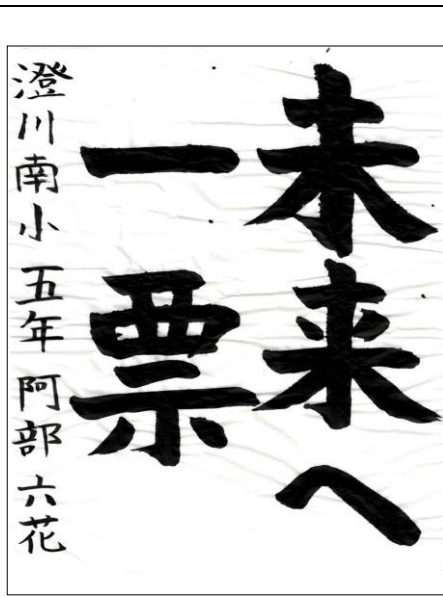 未来へ
一票
澄川南小 五年 阿部 六花